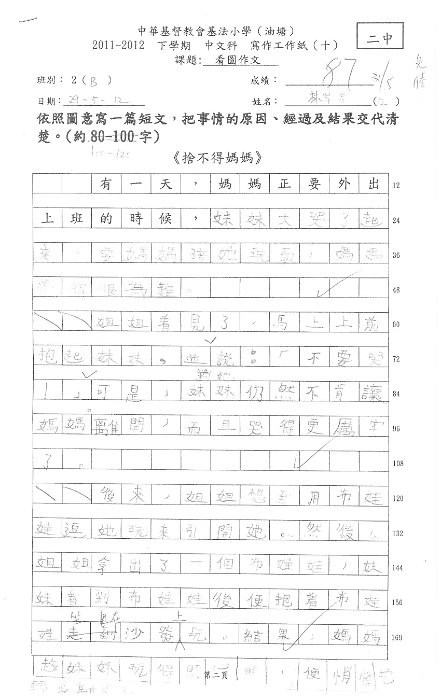 中華基督教會基法小學（油塘）
2011-2012 下學期 中文科 寫作工作紙（十）
課題：看圖作文
二中
班別：2（B）
成績：87
日期：29-5-12
姓名：
依照圖意寫一篇短文，把事情的原因、經過及結果交代清
楚。（約80-100字）
《捨不得媽媽》
有一天，媽媽正要外出 12
上班的時候，妹妹大哭了起 24
來， 媽媽 媽媽 36
得很為難。 48
姐姐看見了，馬上上前 60
抱起妹妹。並說：「不要哭 72
！」可是，妹妹仍然不肯讓 84
媽媽離開，而且哭得更厲害 96
了。 108
後來，姐姐想到用布娃 120
娃逗她玩來引開她。然後， 132
姐姐拿出了一個布娃娃，妹 144
妹看到布娃娃後便抱着布娃 156
娃 沙發 玩。結果，媽媽 169
趁妹妹玩得 時，便悄悄地
第二頁